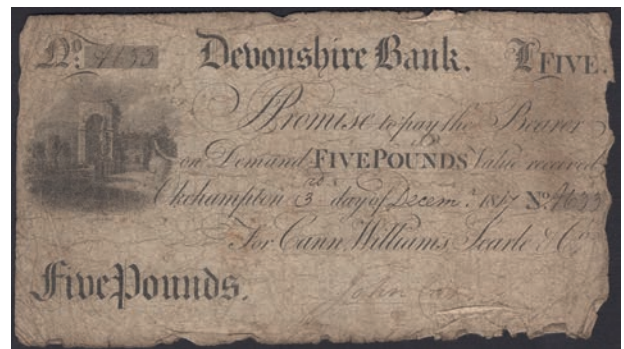 No. 4633 Devonshire Bank. £FIVE.
I Promise to pay the Bearer
on Demand FIVE POUNDS Value received
Okehampton 3rd day of Decemr. 1817 No. 4633
For Cann, Williams, Searle & Co.
Five Pounds. John Cann